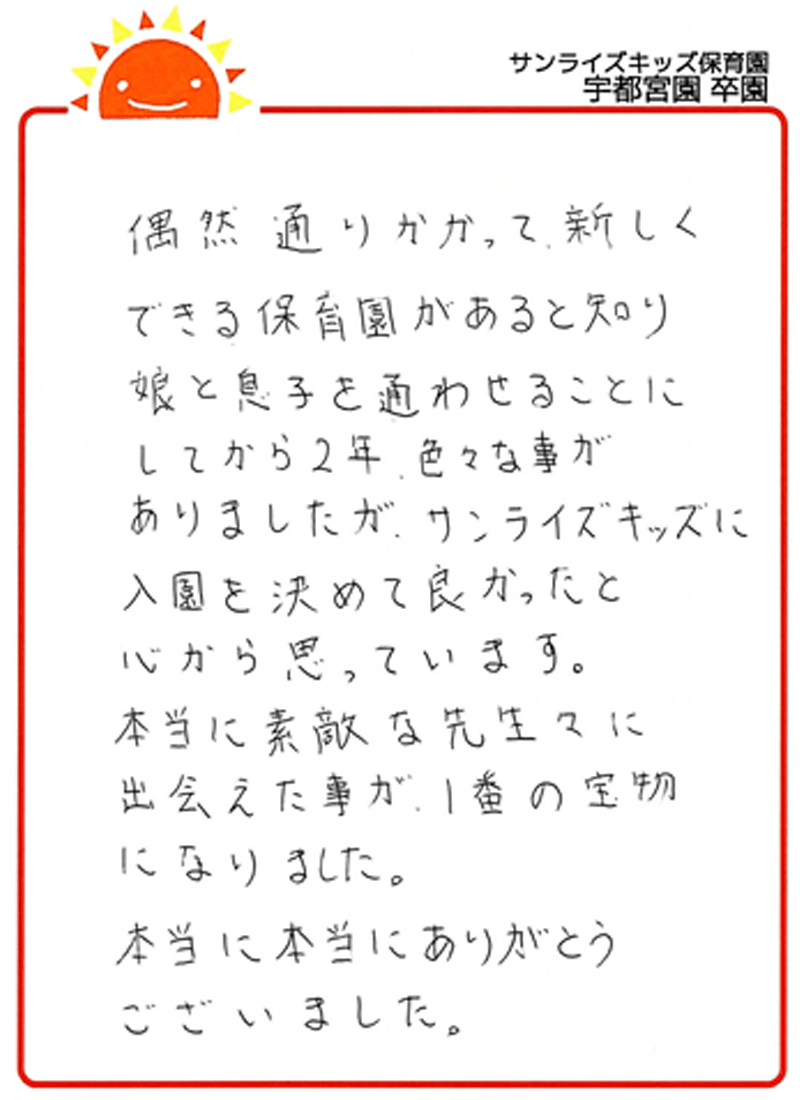 サンライズキッズ保育園
宇都宮園 卒園
偶然通りかかって、新しく
できる保育園があると知り
娘と息子を通わせることに
してから2年、色々な事が
ありましたが、サンライズキッズに
入園を決めて良かったと
心から思っています。
本当に素敵な先生々に
出会えた事が、1番の宝物
になりました。
本当に本当にありがとう
ございました。